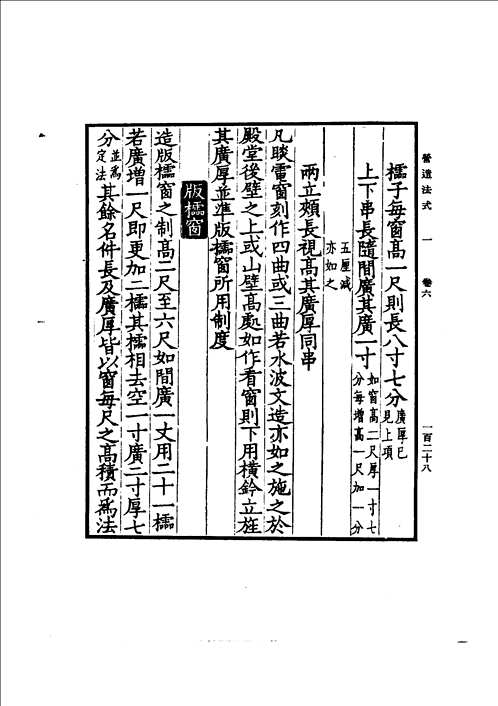 營造法式 一 卷六 一百二十八
櫺子每窗高一尺則長八寸七分廣厚已見上項
上下串長隨間廣其廣一寸如窗高二尺厚一寸七分每增高一尺加一分
五厘減亦如之
兩立頰長視高其廣厚同串
凡睒電窗刻作四曲或三曲若水波文造亦如之施之於
殿堂後壁之上或山壁高處如作看窗則下用橫鈐立旌
其廣厚並準版櫺窗所用制度
版櫺窗
造版櫺窗之制高二尺至六尺如間廣一丈用二十一櫺
若廣增一尺即更加二櫺其櫺相去空一寸廣二寸厚七
分並為定法其餘名件長及廣厚皆以窗每尺之高積而為法